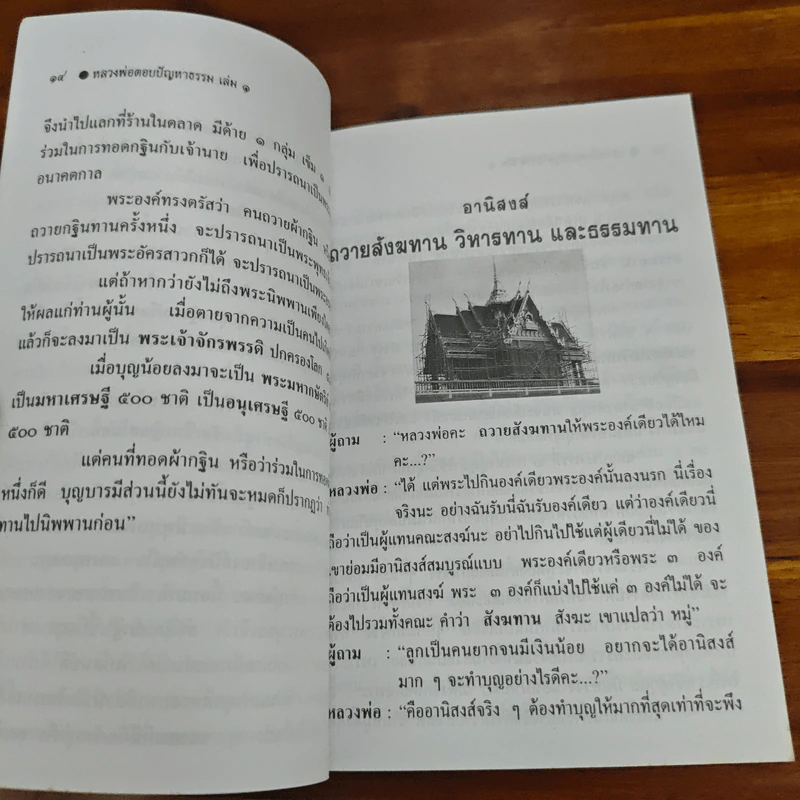 ๑๔ ● หลวงพ่อตอบปัญหาธรรม เล่ม ๑
จึงนำไปแลกที่ร้านในตลาด มีด้าย ๑ กลุ่ม เข็ม ๑
ร่วมในการทอดกฐินกับเจ้านาย เพื่อปรารถนาเป็นพระ
อนาคตกาล
พระองค์ทรงตรัสว่า คนถวายผ้ากฐิน
ถวายกฐินทานครั้งหนึ่ง จะปรารถนาเป็นพระพุทธ
ปรารถนาเป็นพระอัครสาวกก็ได้ จะปรารถนาเป็นพระ
แต่ถ้าหากว่ายังไม่ถึงพระนิพพานเพียงใด
ให้ผลแก่ท่านผู้นั้น เมื่อตายจากความเป็นคนไป
แล้วก็จะลงมาเป็น พระเจ้าจักรพรรดิ ปกครองโลก
เมื่อบุญน้อยลงมาจะเป็น พระมหากษัตริย์
เป็นมหาเศรษฐี ๕๐๐ ชาติ เป็นอนุเศรษฐี ๕๐๐ ชาติ
๕๐๐ ชาติ
แต่คนที่ทอดผ้ากฐิน หรือว่าร่วมในการทอด
หนึ่งก็ดี บุญบารมีส่วนนี้ยังไม่ทันจะหมดก็ปรากฏว่า
ทานไปนิพพานก่อน”
อานิสงส์
ถวายสังฆทาน วิหารทาน และธรรมทาน
ผู้ถาม : “หลวงพ่อคะ ถวายสังฆทานให้พระองค์เดียวได้ไหม
คะ...?”
หลวงพ่อ : “ได้ แต่พระไปกินองค์เดียวพระองค์นั้นลงนรก นี่เรื่อง
จริงนะ อย่างฉันรับนี่ฉันรับองค์เดียว แต่ว่าองค์เดียวนี่
ถือว่าเป็นผู้แทนคณะสงฆ์นะ อย่าไปกินไปใช้แต่ผู้เดียวนี่ไม่ได้ ของ
เขาย่อมมีอานิสงส์สมบูรณ์แบบ พระองค์เดียวหรือพระ ๓ องค์
ถือว่าเป็นผู้แทนสงฆ์ พระ ๓ องค์ก็แบ่งไปใช้แค่ ๓ องค์ไม่ได้ จะ
ต้องไปรวมทั้งคณะ คำว่า สังฆทาน สังฆะ เขาแปลว่า หมู่”
ผู้ถาม : “ลูกเป็นคนยากจนมีเงินน้อย อยากจะได้อานิสงส์
มาก ๆ จะทำบุญอย่างไรดีคะ...?”
หลวงพ่อ : “คืออานิสงส์จริง ๆ ต้องทำบุญให้มากที่สุดเท่าที่จะพึง